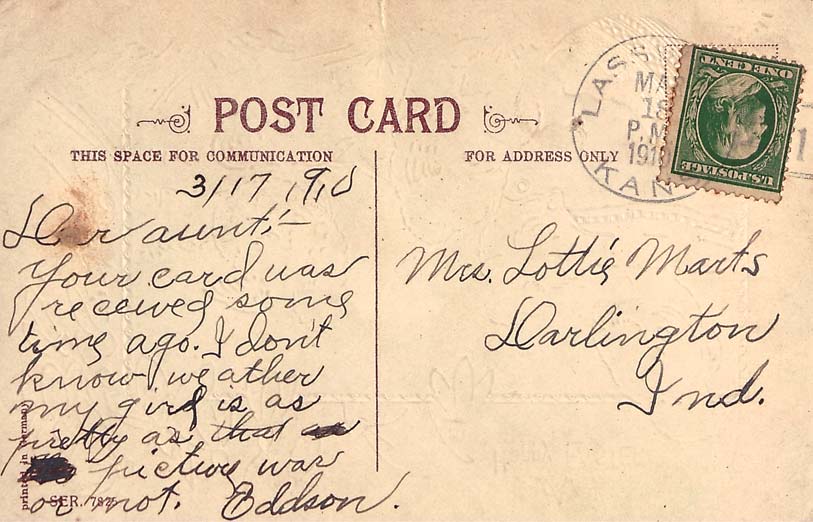 POST CARD
THIS SPACE FOR COMMUNICATION
FOR ADDRESS ONLY
LASS
MA
18
P.M
191
KAN
1
ONE CENT
U.S. POSTAGE
3/17 1910
Dear aunt:—
Your card was
received some
time ago. I don't
know weather
my girl is as
pretty as that
picture was
or not. Eddson.
Mrs. Lottie Marts
Darlington
Ind.
printed in Germany
SER. 782